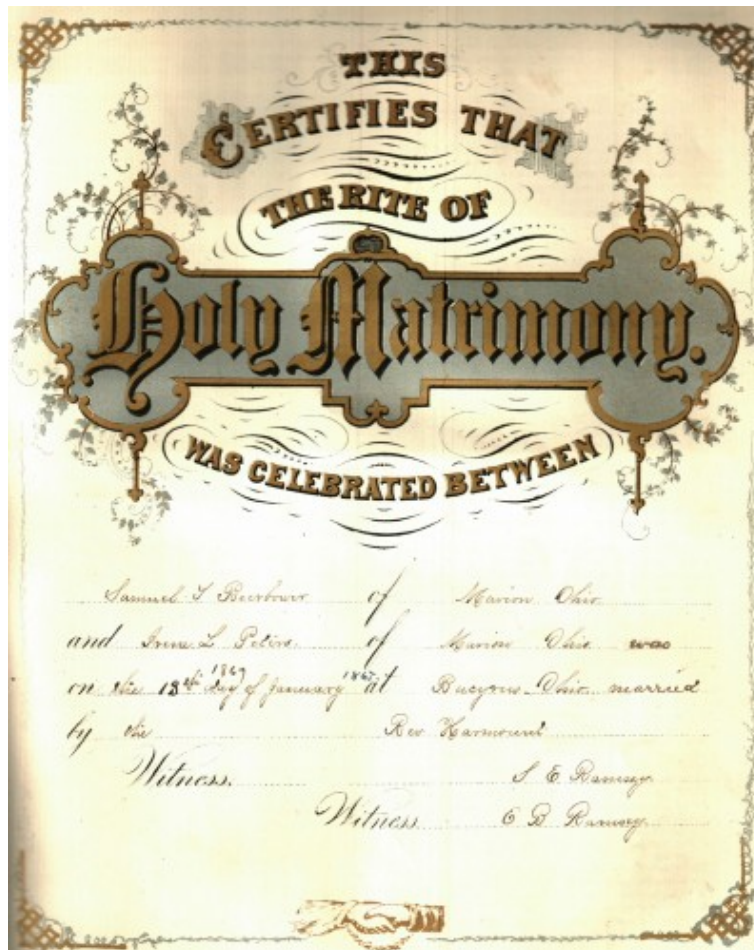 THIS
CERTIFIES THAT
THE RITE OF
Holy Matrimony.
WAS CELEBRATED BETWEEN
Samuel of Marion Ohio
and Irene L Peters of Marion Ohio was
1869 1867
on the 13th day of January at Bucyrus Ohio married
by the Rev Harmount
Witness. S. E. Ramsey
Witness E B Ramsey